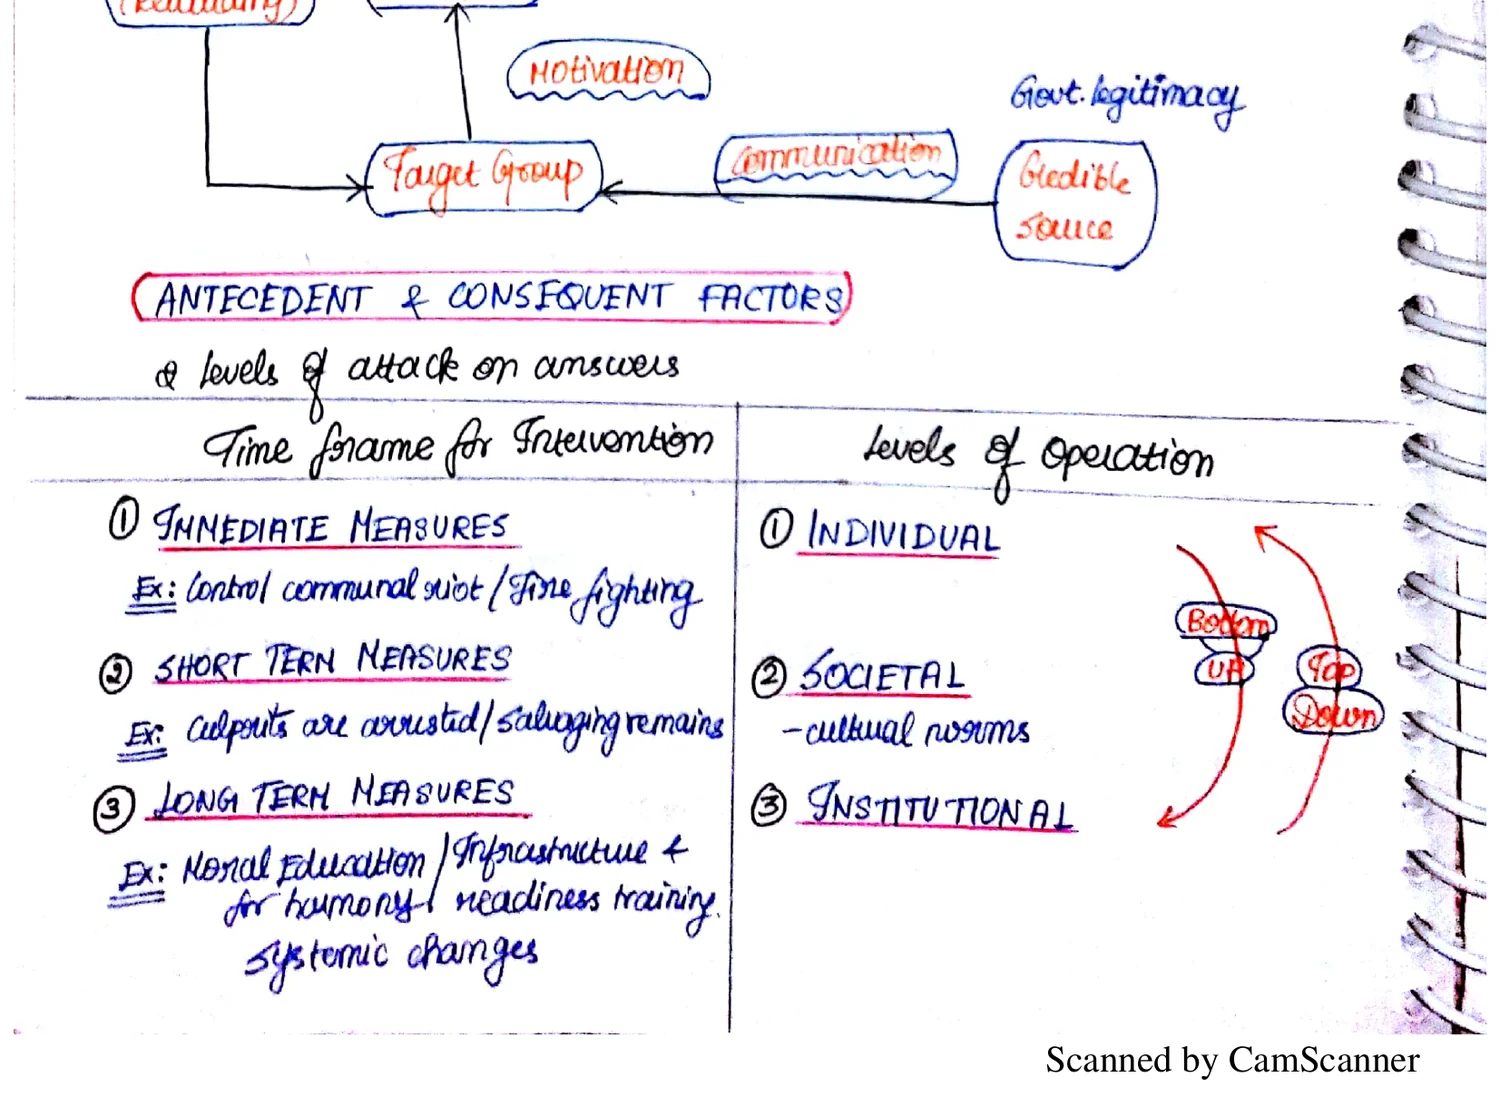 Motivation
Govt. legitimacy
Target Group
Communication
Credible
Source
ANTECEDENT & CONSEQUENT FACTORS
levels of attack on answers
Time frame for Intervention
Levels of Operation
① IMMEDIATE MEASURES
① INDIVIDUAL
Ex: Control communal riot / Fire fighting
Bottom
UP
Top
Down
② SHORT TERM MEASURES
② SOCIETAL
Ex: Culprits are arrested / Salvaging remains
- cultural norms
③ LONG TERM MEASURES
③ INSTITUTIONAL
Ex: Moral Education / Infrastructure &
for harmony / readiness training.
systemic changes
Scanned by CamScanner